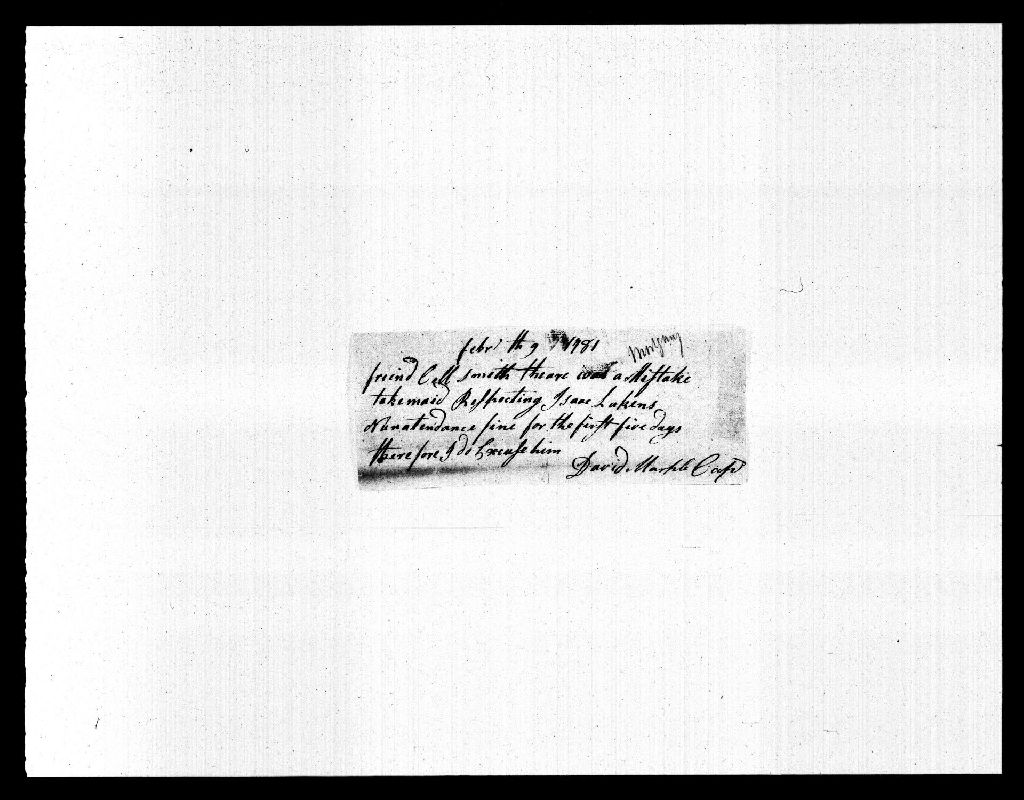 febr th 9 1781
freind Coll Smith theare was a Mistake
takemaid Respecting Isaac Lukens
Nunatendance fine for the first five days
therefore I do Excuse him
David Marple Capt